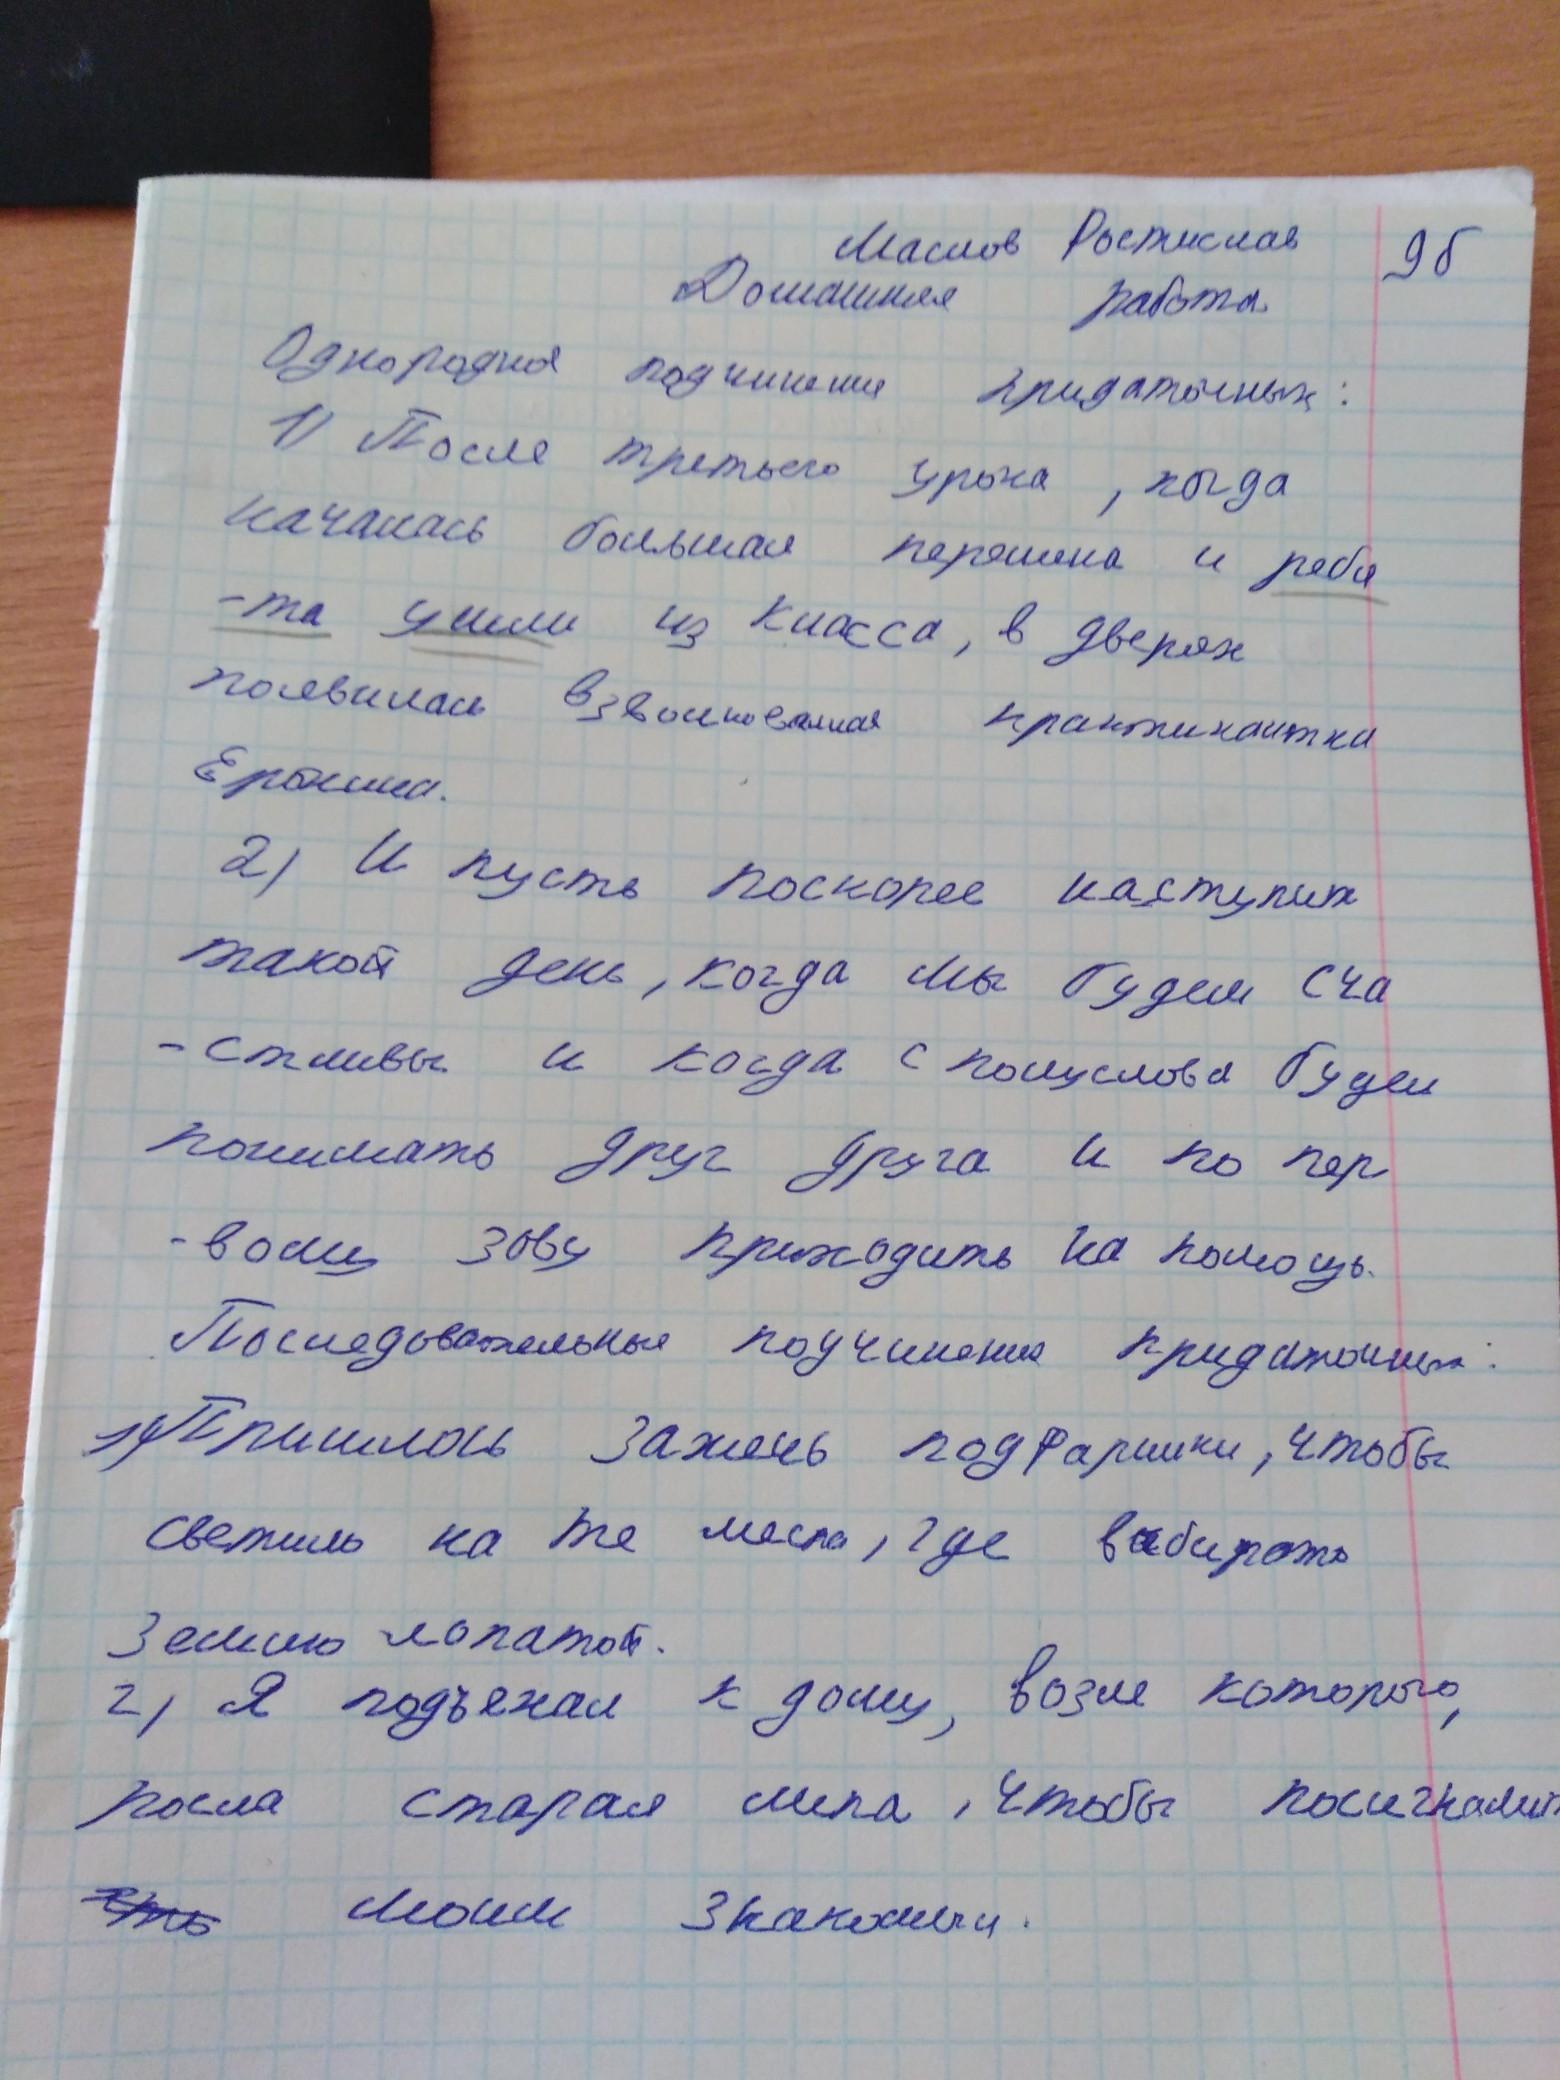 Маслов Ростислав 9б
Домашняя работа
Однородное подчинение придаточных:
1) После третьего урока, когда
началась большая перемена и ребя
-та ушли из класса, в дверях
появилась взволнованная практикантка
2) И пусть поскорее наступит
такой день, когда мы будем сча
-стливы и когда с полуслова будем
понимать друг друга и по пер
-вому зову приходить на помощь.
Последовательные подчинения придаточных:
1) Пришлось зажечь подфарники, чтобы
светить на те места, где выбирать
землю лопатой.
2) Я подъехал к дому, возле которого,
росла старая липа, чтобы посигналит
моим знакомым.